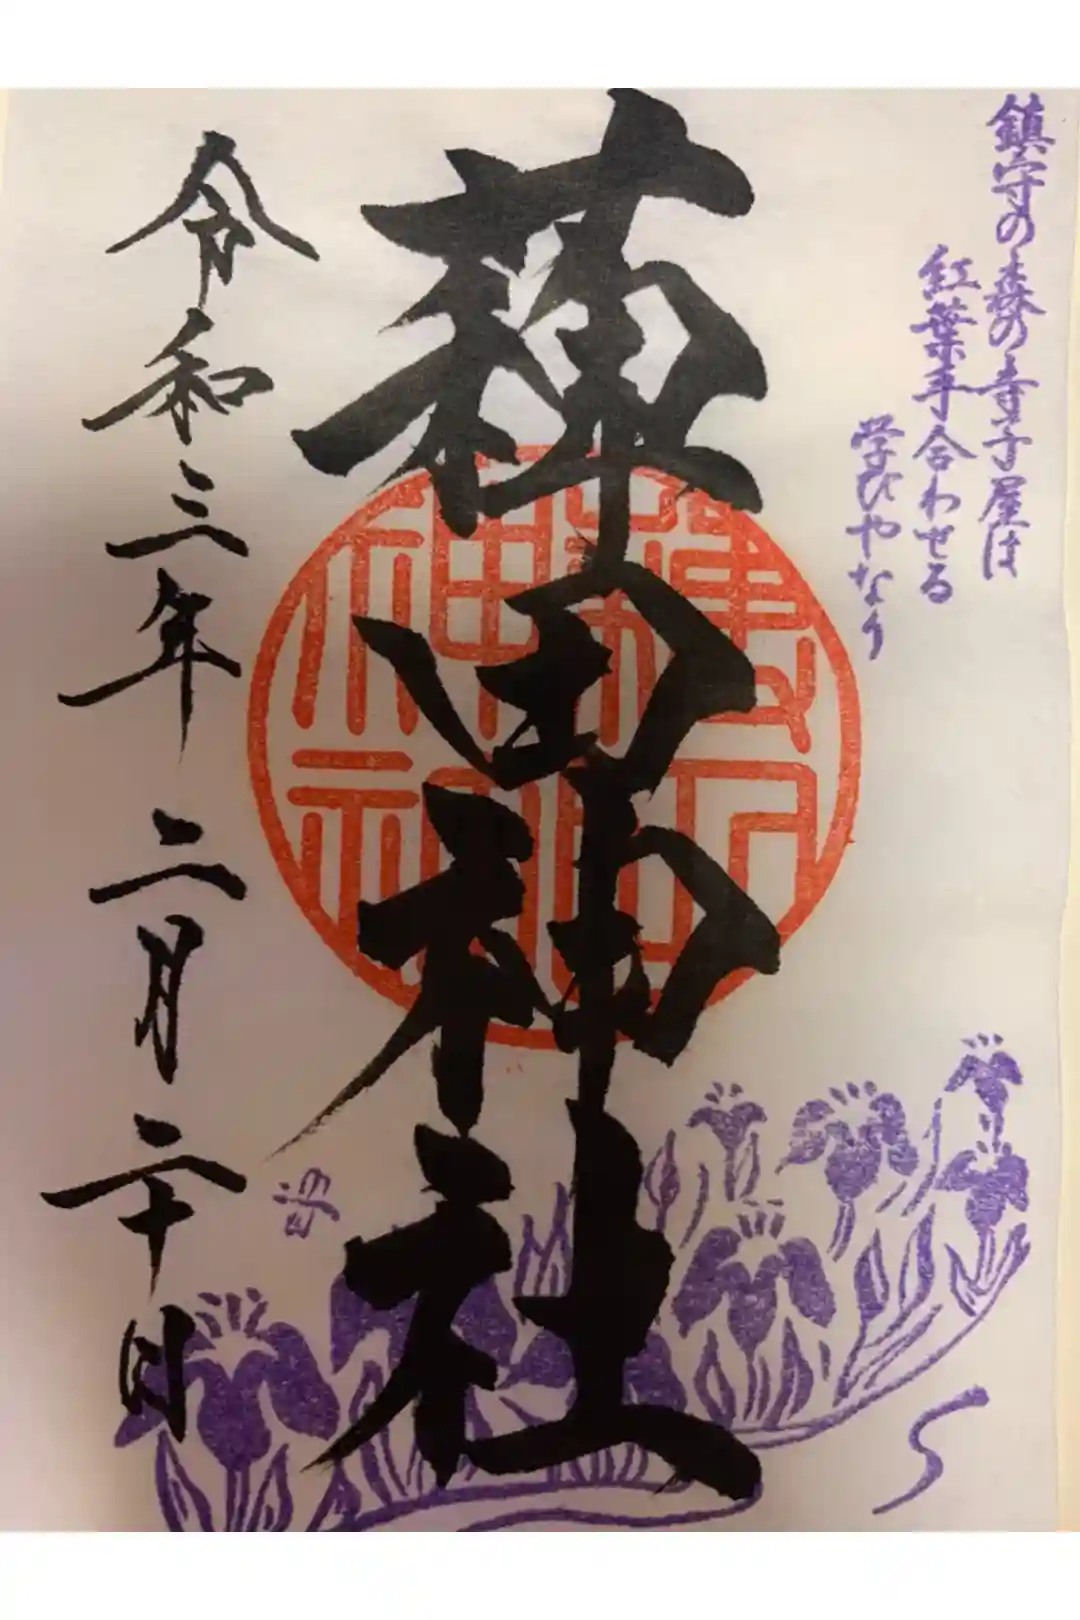 鎮守の森の寺子屋は
紅葉手合わせる
学びやなり
薭田神社
令和三年 二月二十日